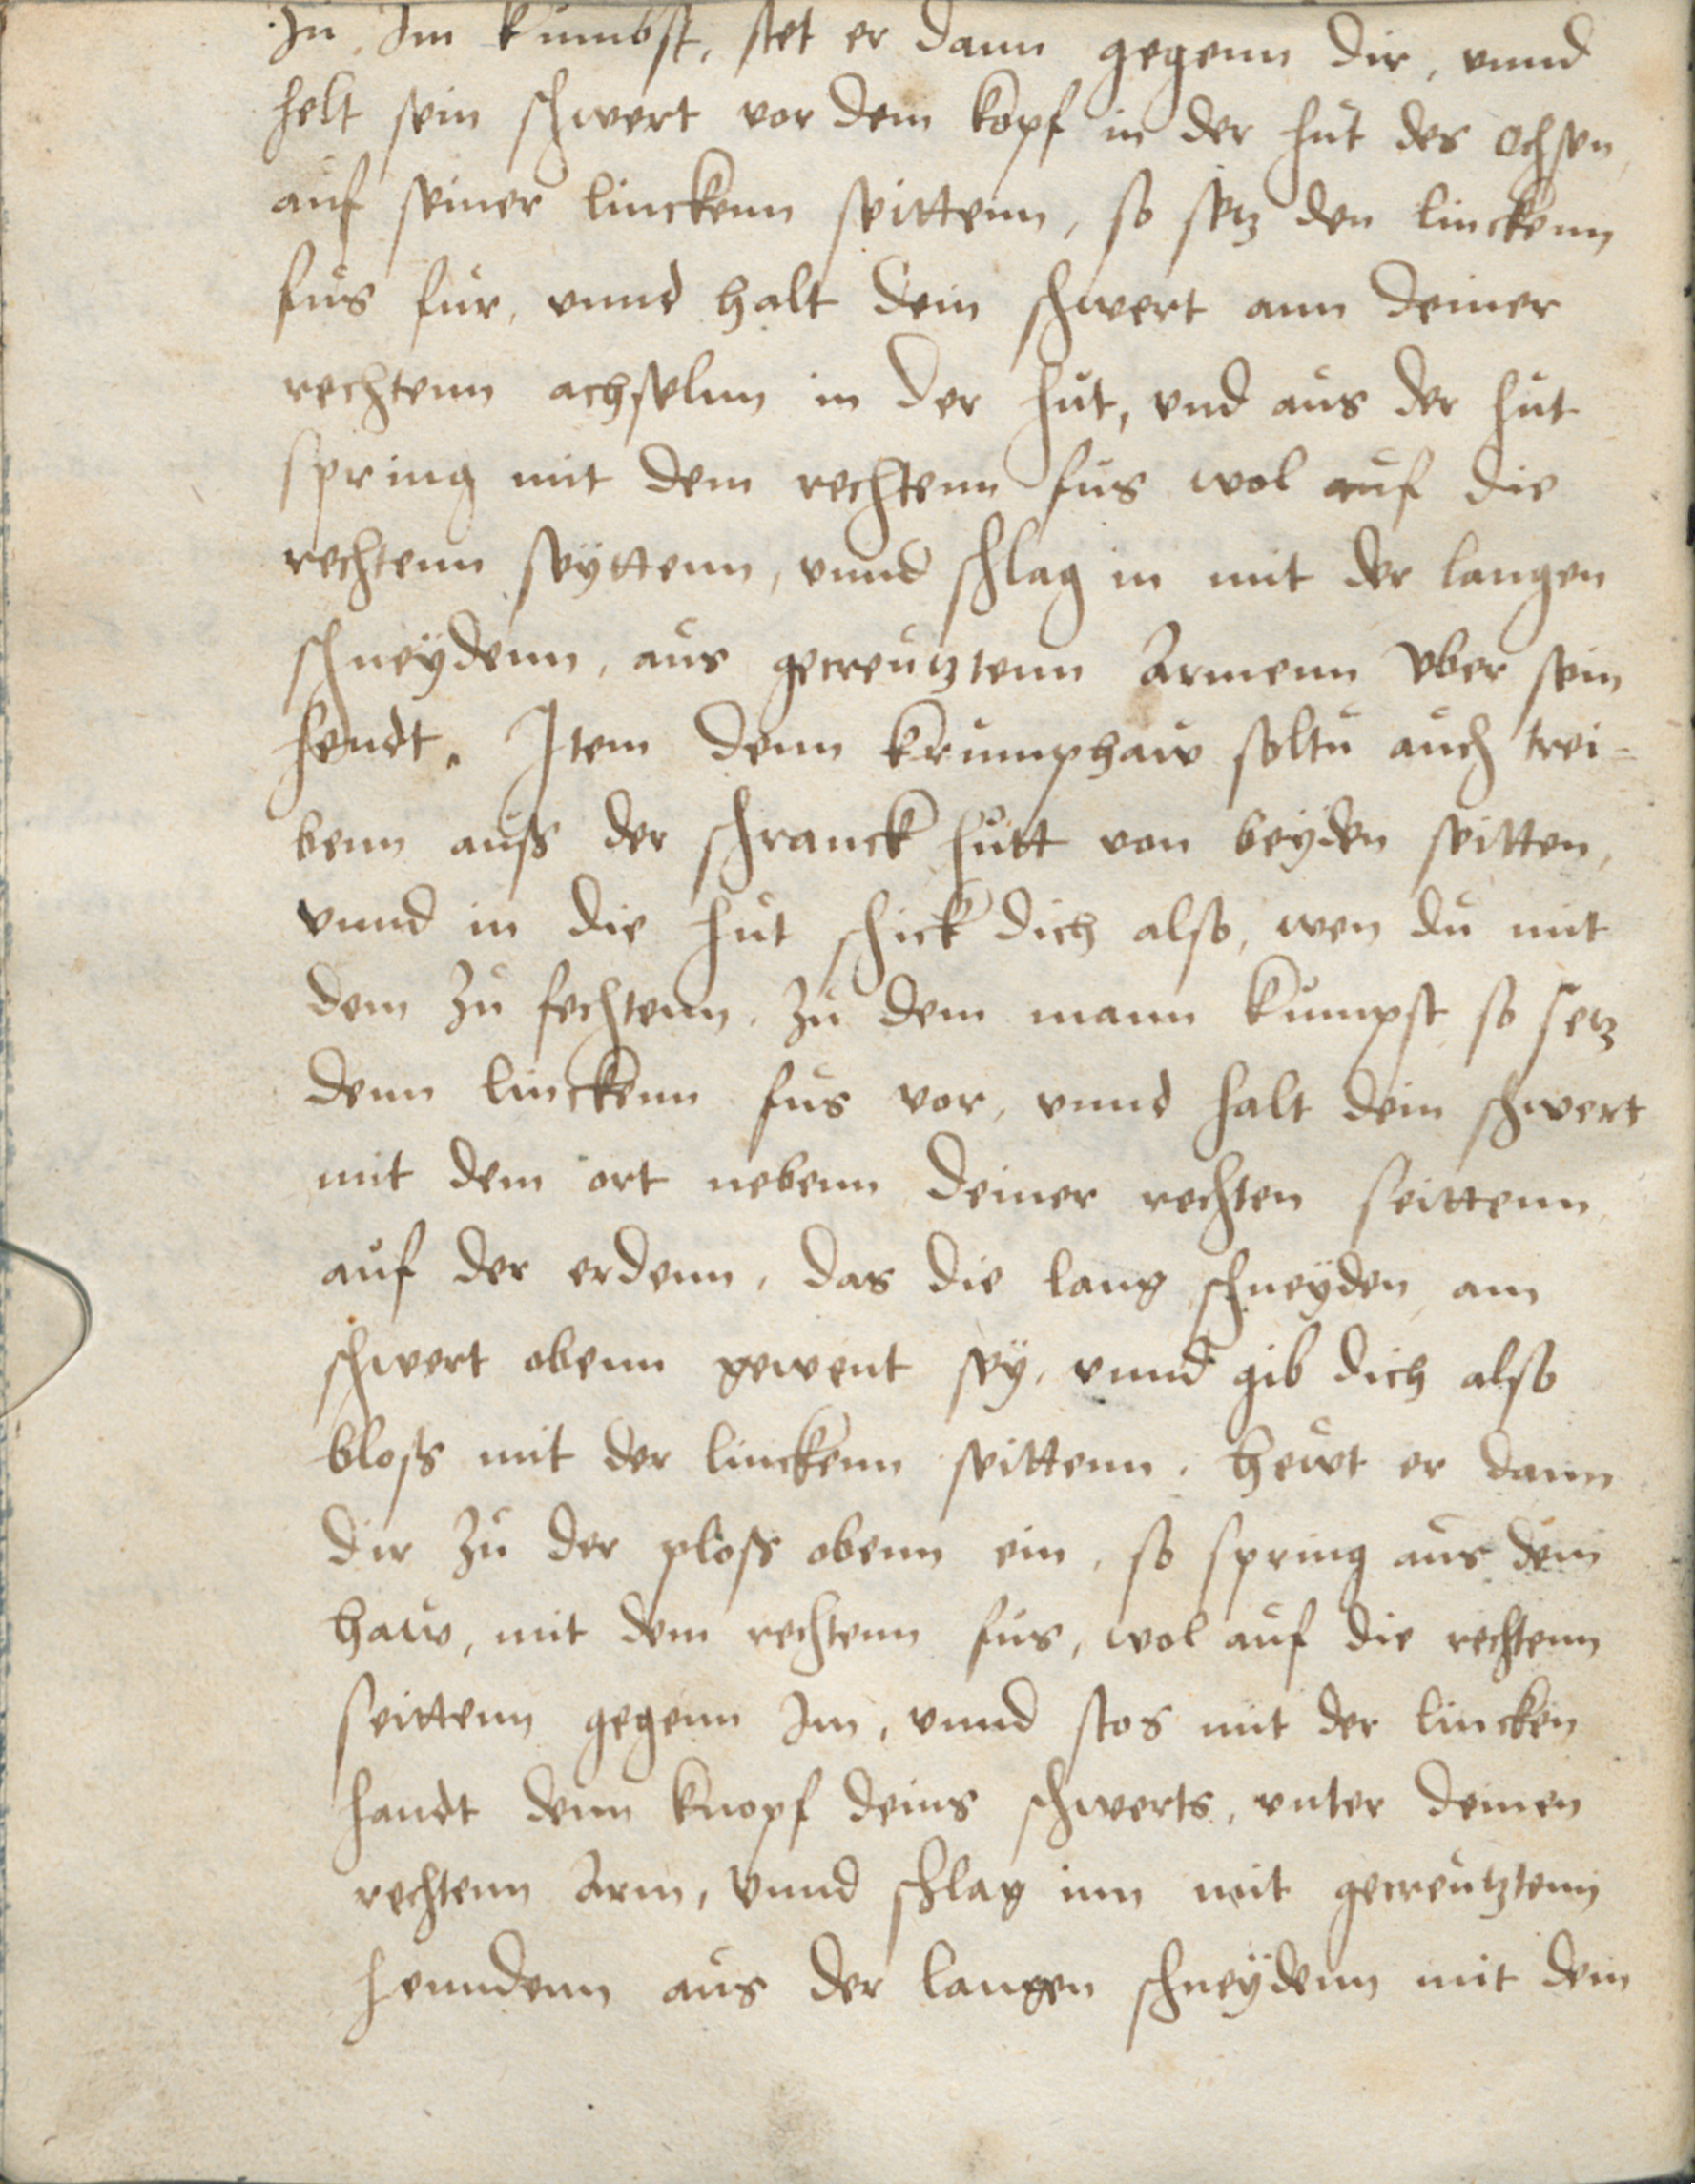 zu Im kumbst, stet er dann gegenn dir, vnnd
helt sein schwert vor dem kopf in der hut des ochsen
auf seiner linckenn seittenn, so setz den linckenn
fus fur, vnnd halt dein schwert ann deiner
rechtenn achselnn in der hut, vnd aus der hut
spring mit dem rechtenn fus wol auf die
rechtenn seyttenn, vnnd schlag in mit der langen
schneydenn, aus gecreutztenn Armenn vber sein
hendt. Item denn krumphaw soltu auch trei-
benn auss der schranck hutt von beyden seitten,
vnnd in die hut schick dich also, wen du mit
dem zu fechtenn, zu dem mann kumpst so setz
denn linckenn fus vor, vnnd halt dein schwert
mit dem ort nebenn deiner rechten seittenn
auf der erdenn, das die lang schneyden am
schwert obenn gewent sey, vnnd gib dich also
bloss mit der linckenn seittenn. hewt er dann
dir zu der ploss obenn ein, so spring aus dem
haw, mit dem rechtenn fus, wol auf die rechtenn
seittenn gegenn Im, vnnd stos mit der lincken
handt denn knopf deins schwerts, vnter deinen
rechtenn Arm, vnnd schlag inn mit gecreutztenn
henndenn aus der langen schneydenn mit dem